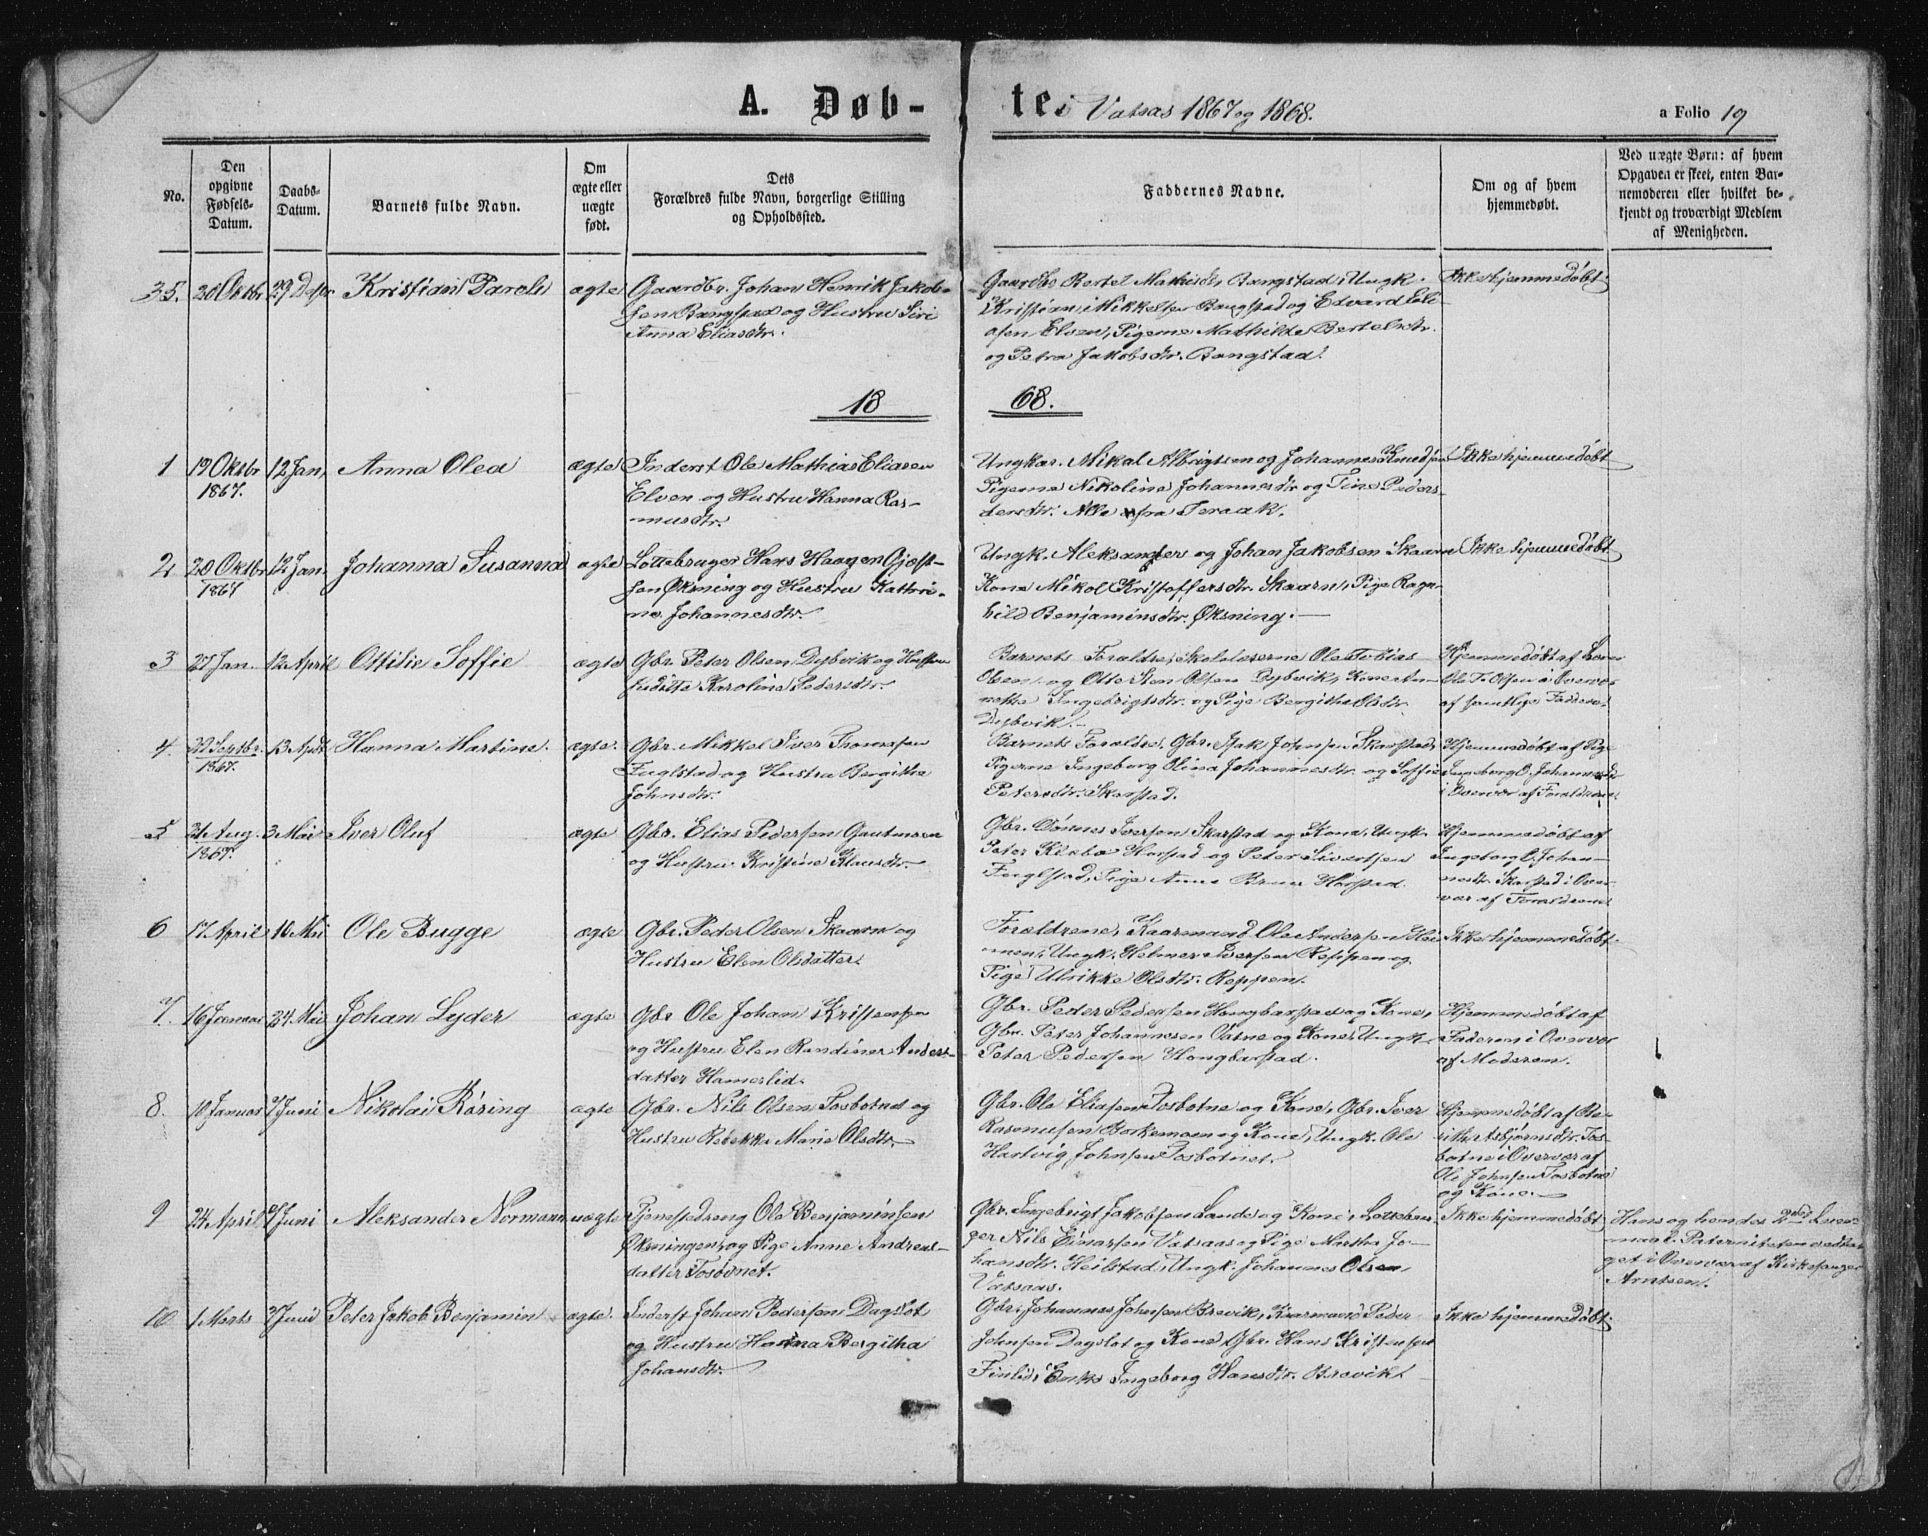 A. Døb-
te i Vatsas 1867 og 1868.
a Folio 19
No.
Den
opgivne
Fødsels-
Datum.
Daabs-
Datum.
Barnets fulde Navn.
Om
ægte eller
uægte
født.
Dets
Forældres fulde Navn, borgerlige Stilling
og Opholdssted.
Faddernes Navne.
Om og af hvem
hjemmedøbt.
Ved uægte Børn: af hvem
Opgaven er skeet, enten Bar-
nemoderen eller hvilket be-
kjendt og troværdigt Medlem
af Menigheden.
35. 28 Oktbr 29 Desbr Kristian Pareli ægte
Gaardbr. Johan Henrik Jakob-
sen Bangstad og Hustru Siri
Anna Eliasdtr.
Gaardbr Bertel Mathisdr Bangstad, Ungk.
Kristian Mikkelsen Bangstad og Edvard Eli-
asen Elven, Pigerne Mathilde Bertelsdtr.
og Petra Jakobsdtr. Bangstad.
Ikke hjemmedøbt
18 68.
1 19 Oktbr 1867. 12 Jan, Anna Olea ægte
Inderst Ole Mathias Eliasen
Elven og Hustru Hanna Ras-
musdtr.
Ungkar. Mikal Albrigtsen og Johannes Knudsen
Pigerne Nikoline Johannesdtr og Tine Peders-
dersdtr. Alle fra Teraak.
Ikke hjemmedøbt
2 28 Oktbr 1867 12 Jan. Johanna Susanna ægte
Lottebruger Hans Haagen Gjøls-
sen Øksning og Hustru Kathri-
ne Johannesdtr.
Ungk. Aleksander og Johan Jakobsen Skaarn
Kone Mikol Kristoffersdtr. Skaarn, Pige Ragn-
hild Benjaminsdtr. Øksning.
Ikke hjemmedøbt
3 27 Jan. 12 April Ottilie Soffie ægte
Gbr. Peter Olsen Dybvik og Hustru
Juditte Karoline Pedersdtr.
Barnets Forældre, Skolelærerne Ole Tobias
Olsen og Otter Sten Olsen Dybvik, Kone An-
nette Ingebrigtsdtr. og Pige Bergitha Olsdtr.
Dybvik.
Hjemmedøbt af
Ole T. Olsen i Overvær
af samtlige Faddere.
4. 22 Septbr. 1867. 13 April Hanna Martine. ægte.
Gbr. Mikkel Iver
Fuglstad og Hustru Bergitha
Johnsdtr.
Barnets Forældre, Gbr. Isak Johnsen Skarstad,
Pigerne Ingeborg Olina Johannesdtr. og Soffie
Petersdtr. Skarstad.
Hjemmedøbt af Pige
Ingeborg O. Johannesdr
i Overvær af Forældrene.
5 21 Aug. 1867. 3 Mai Iver Oluf ægte
Gbr. Elias Pedersen Gautmoen
og Hustru Kristine Klausdtr.
Gbr. Tønnes Iversen Skarstad og Kone, Ungk.
Peter Horstad og Peter Sivertsen
Fuglstad, Pige Anne Horstad.
Hjemmedøbt af
Ingeborg O. Johan-
nesdtr. Skarstad i Over-
vær af Forældrene
6 17. April 10 Mai Ole Bugge ægte
Gbr. Peder Olsen Skaarn og
Hustru Elen Olsdatter.
Forældrene, Kaarmand Ole Andersen Hei-
men, Ungk. Helmer Iversen Reppen og
Pige Ulrikke Olsdtr. Reppen.
Ikke hjemmedøbt
7. 16 Januar 24 Mai Johan Lyder ægte
Gbr Ole Johan Kristensen
og Hustru Elen Randine Anders-
datter Hamerlid.
Gbr. Peder Pedersen Hongbarstad og Kone,
Gbr. Peter Johannesen Vatne og Kone, Ungk.
Peter Pedersen Hongbarstad.
Hjemmedøbt af
Faderen i Overvær
af Moderen.
8. 10 Januar 7 Juni Nikolai Røring ægte
Gbr. Nils Olsen Tosbotnet og
Hustru Rebekke Marie Olsdtr.
Gbr. Ole Eliasen Tosbotne og Kone, Gbr. Iver
Rasmusen Borkemoen og Kone, Ungk. Ole
Hartvig Johnsen Tosbotnet.
Hjemmedøbt af Be-
rith Asbjørnsdtr. Tos-
botne i Overvær af
Ole Johnsen Tosbotne
og Kone.
9 24 April 7 Juni Aleksander Normann uægte
Tjenestedreng Ole Benjaminsen
Øksningen, og Pige Anne Andreas-
datter Tosbotnet.
Gbr. Ingebrigt Jakobsen Lande og Kone, Lottebru-
ger Nils Einarsen Vatsaas og Pige Martha Jo-
hansdtr. Heilstad, Ungk. Johannes Olsen,
Vatsaas.
Ikke hjemmedøbt
Hans og hendes 2det Leier-
maal. Paterniteten vedta-
get i Overvær af Kirkesanger
Arntsen.
10 1 Marts 7 Juni Peter Jakob Benjamin ægte.
Inderst Johan Pedersen Dagslot
og Hustru Hanna Bergitha
Johansdtr.
Gbr. Johannes Johnsen Brevik, Kaarmand Peder
Johnsen Dagslot og Kone, Gbr. Hans Kristensen
Finlid, Enke Ingeborg Hansdtr. Brevik
Ikke hjemmedøbt.